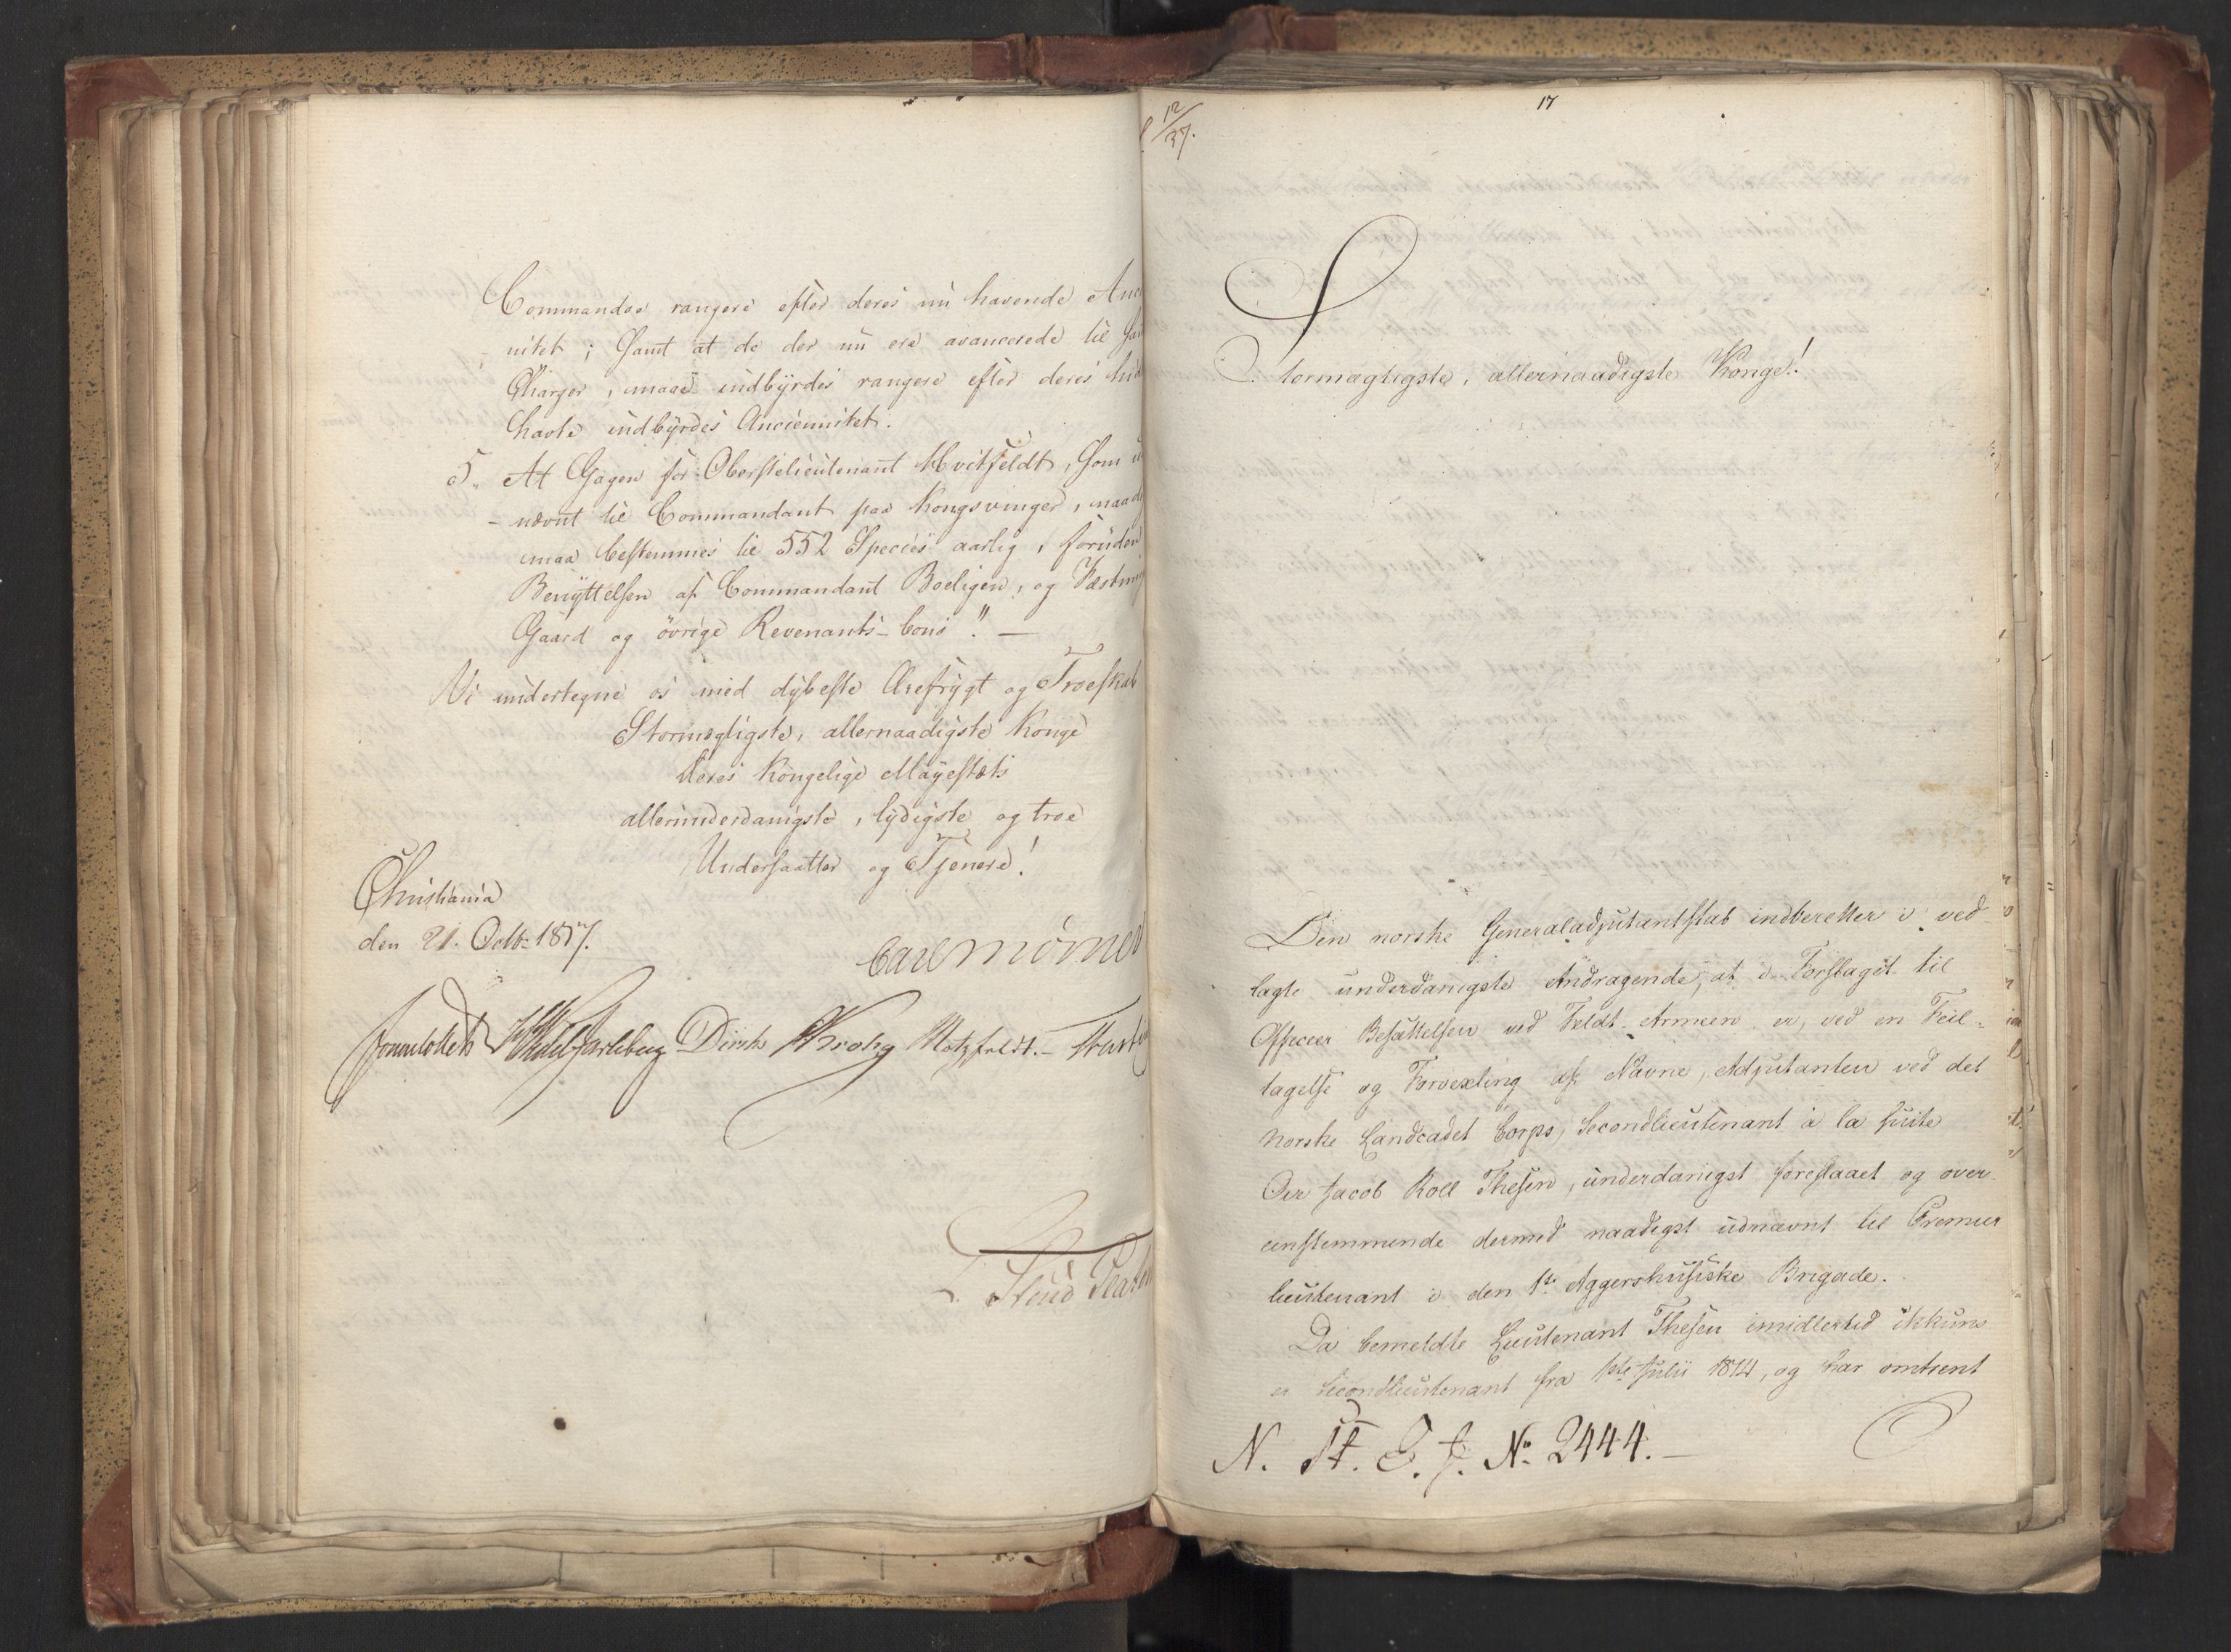 Commandoe rangere efter deres nu havende Anci
- nitet; samt at de der nu ere avancerede til
Charger, maae indbyrdes rangere efter deres hid
havte indbyrdes Anciennitet.
5. At Gagen for Oberstelieutenant Hvitfeldt, som u
- nævnt til Commandant paa Kongsvinger, naad
maa bestemmes til 552 Species aarlig, foruden
Benyttelsen af Commandant Boeligen, og Fæstning
Gaard og övrige Revenants-Cons." —
Vi undertegne os med dybeste Ærefrygt og Troeskab
Stormægtigste, allernaadigste Konge
Deres Kongelige Mayestæts
allerunderdanigste, lydigste og troe
Undersaatter og Tjenere!
Christiania
den 21. Octbr 1817.
Carl Mörner
Sommerfeldt HWedel Jarlsberg Diriks Krohg Motzfeldt.
12/37.
17
Stormægtigste, allernaadigste Konge!
Den norske Generaladjutantstab indberetter i ved
lagte underdanigste Andragende, at i Forslaget til
Officeer Besættelsen ved Feldt-Armeen er, ved en Feil-
tagelse og Forvexling af Navne, Adjutanten ved det
norske Landcadet Corps, Secondlieutenant à la suite
Ove Jacob Roll Thesen, underdanigst foreslaaet og over-
eenstemmende dermed naadigst udnævnt til Premier
lieutenant i den 1ste Aggershusiske Brigade.
Da bemeldte Lieutenant Thesen imidlertid ikkuns
er Secondlieutenant fra 1ste Julii 1814, og har omtrent
N. St. E. J. No 2444.-